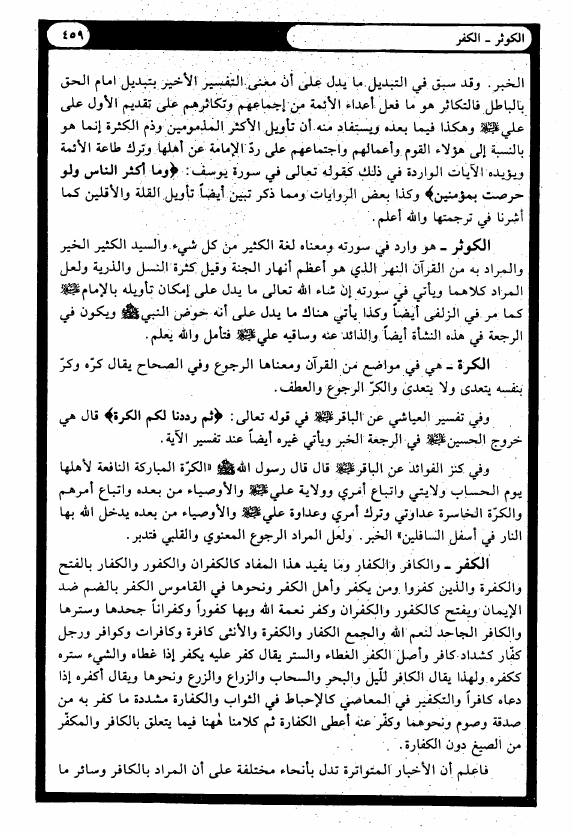 الكوثر ـ الكفر
٤٥٩
الخبر. وقد سبق في التبديل ما يدل على أن معنى التفسير الأخير بتبديل امام الحق
بالباطل فالتكاثر هو ما فعل أعداء الأئمة من إجماعهم وتكاثرهم على تقديم الأول على
علي ﷺ وهكذا فيما بعده ويستفاد منه أن تأويل الأكثر المذمومين وذم الكثرة إنما هو
بالنسبة إلى هؤلاء القوم وأعمالهم واجتماعهم على ردّ الإمامة عن أهلها وترك طاعة الأئمة
ويؤيده الآيات الواردة في ذلك كقوله تعالى في سورة يوسف: ﴿وما أكثر الناس ولو
حرصت بمؤمنين﴾ وكذا بعض الروايات ومما ذكر تبين أيضاً تأويل القلة والأقلين كما
أشرنا في ترجمتها والله أعلم.
الكوثر ـ هو وارد في سورته ومعناه لغة الكثير من كل شيء والسيد الكثير الخير
والمراد به من القرآن النهر الذي هو أعظم أنهار الجنة وقيل كثرة النسل والذرية ولعل
المراد كلاهما ويأتي في سورته إن شاء الله تعالى ما يدل على إمكان تأويله بالإمام ﷺ
كما مر في الزلفى أيضاً وكذا يأتي هناك ما يدل على أنه حوض النبي ﷺ ويكون في
الرجعة في هذه النشأة أيضاً والذائد عنه وساقيه علي ﷺ فتأمل والله يعلم.
الكرة ـ هي في مواضع من القرآن ومعناها الرجوع وفي الصحاح يقال كرّه وكرّ
بنفسه يتعدى ولا يتعدى والكرّ الرجوع والعطف.
وفي تفسير العياشي عن الباقر ﷺ في قوله تعالى: ﴿ثم رددنا لكم الكرة﴾ قال هي
خروج الحسين ﷺ في الرجعة الخبر ويأتي غيره أيضاً عند تفسير الآية.
وفي كنز الفوائد عن الباقر ﷺ قال قال رسول الله ﷺ «الكرّة المباركة النافعة لأهلها
يوم الحساب ولايتي واتباع أمري وولاية علي ﷺ والأوصياء من بعده واتباع أمرهم
والكرّة الخاسرة عداوتي وترك أمري وعداوة علي ﷺ والأوصياء من بعده يدخل الله بها
النار في أسفل السافلين» الخبر. ولعل المراد الرجوع المعنوي والقلبي فتدبر.
الكفر ـ والكافر والكفار وما يفيد هذا المفاد كالكفران والكفور والكفار بالفتح
والكفرة والذين كفروا ومن يكفر وأهل الكفر ونحوها في القاموس الكفر بالضم ضد
الإيمان ويفتح كالكفور والكفران وكفر نعمة الله وبها كفوراً وكفراناً جحدها وسترها
والكافر الجاحد لنعم الله والجمع الكفار والكفرة والأنثى كافرة وكافرات وكوافر ورجل
كفّار كشداد كافر وأصل الكفر الغطاء والستر يقال كفر عليه يكفر إذا غطاه والشيء ستره
ككفره ولهذا يقال الكافر للّيل والبحر والسحاب والزراع والزرع ونحوها ويقال أكفره إذا
دعاه كافراً والتكفير في المعاصي كالإحباط في الثواب والكفارة مشددة ما كفر به من
صدقة وصوم ونحوهما وكفّر عنه أعطى الكفارة ثم كلامنا هٰهنا فيما يتعلق بالكافر والمكفّر
من الصيغ دون الكفارة.
فاعلم أن الأخبار المتواترة تدل بأنحاء مختلفة على أن المراد بالكافر وسائر ما